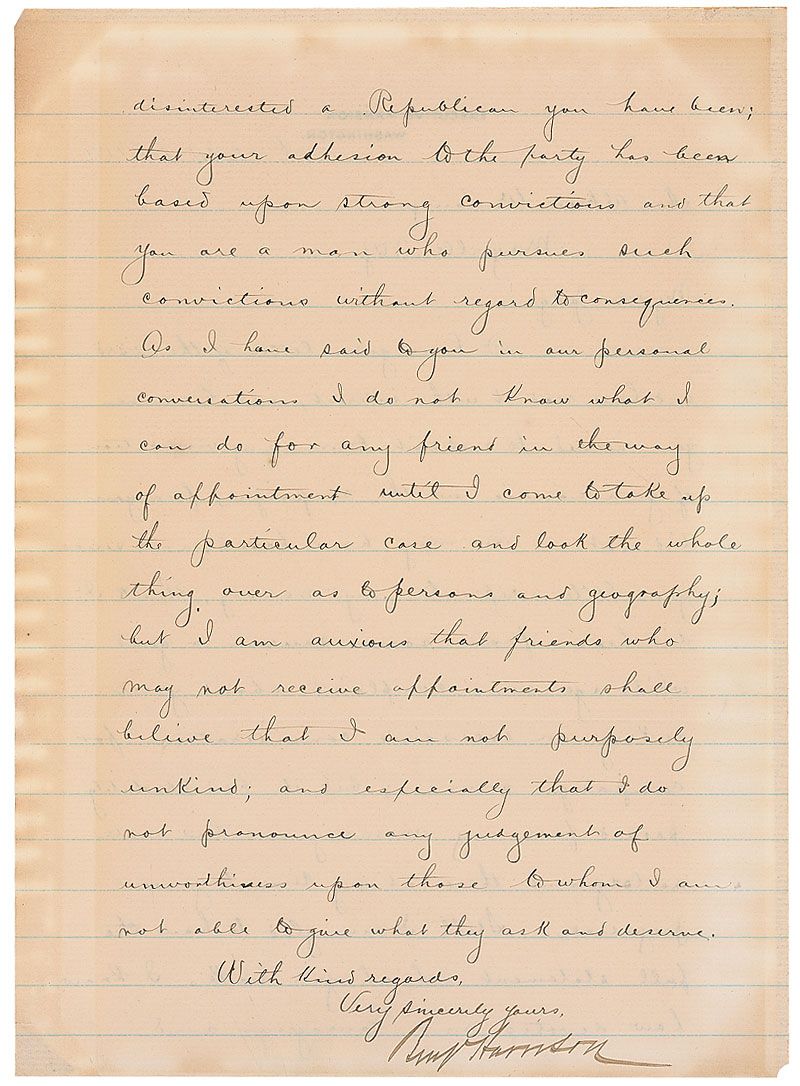 disinterested a Republican you have been;
that your adhesion to the party has been
based upon strong convictions and that
you are a man who pursues such
convictions without regard to consequences.
As I have said to you in our personal
conversations I do not know what I
can do for any friend in the way
of appointment until I come to take up
the particular case and look the whole
thing over as to persons and geography;
but I am anxious that friends who
may not receive appointments shall
believe that I am not purposely
unkind; and especially that I do
not pronounce any judgement of
unworthiness upon those to whom I am
not able to give what they ask and deserve.
With kind regards,
Very sincerely yours,
Benj Harrison